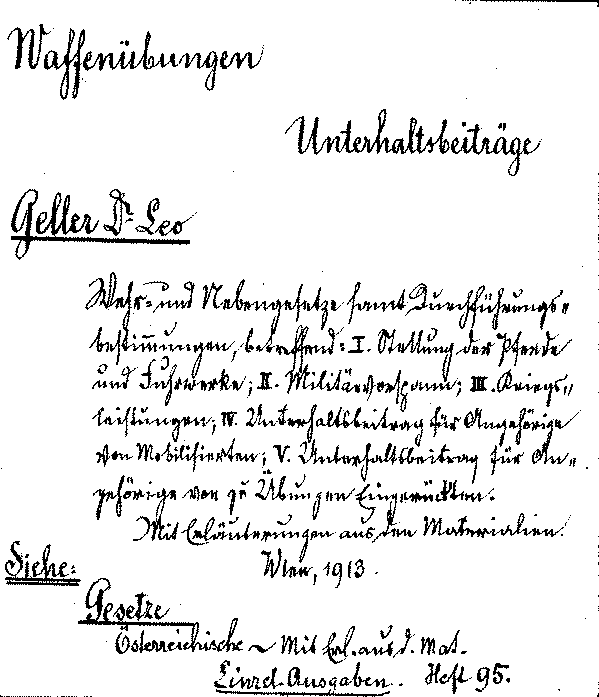 Waffenübungen
Unterhaltsbeiträge
Geller Dr. Leo
Wehr- und Nebengesetze samt Durchführungs-
bestimmungen, betreffend: I. Stellung der Pferde
und Fuhrwerke; II. Militärvorspann; III. Kriegs-
leistungen; IV. Unterhaltsbeitrag für Angehörige
von Mobilisierten; V. Unterhaltsbeitrag für An-
gehörige von zu Übungen Eingerückten.
Mit Erläuterungen aus den Materialien.
Wien, 1913.
Siehe:
Gesetze
Österreichische ~ Mit Erl. aus d. Mat.
Einzel-Ausgaben. Heft 95.